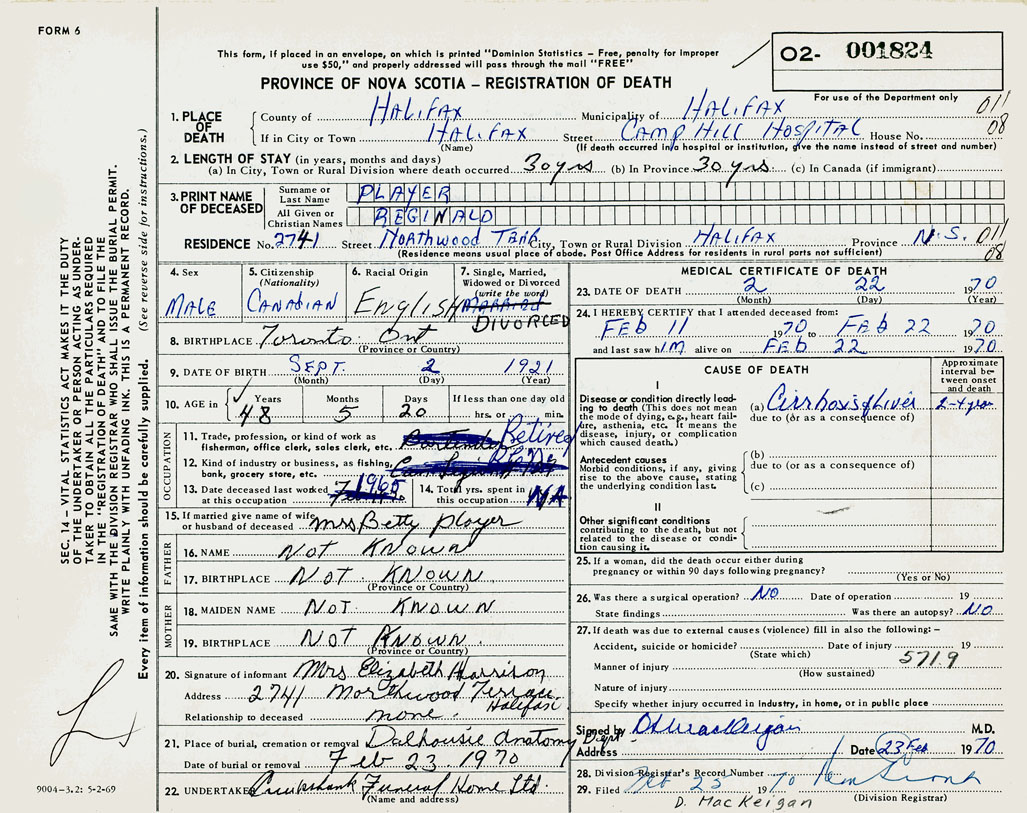 FORM 6
This form, if placed in an envelope, on which is printed "Dominion Statistics – Free, penalty for improper
use $50," and properly addressed will pass through the mail "FREE"
02- 001824
PROVINCE OF NOVA SCOTIA – REGISTRATION OF DEATH
For use of the Department only
1. PLACE OF DEATH
County of HALIFAX Municipality of HALIFAX 011
If in City or Town HALIFAX Street CAMP HILL HOSPITAL House No. 08
(Name) (If death occurred in a hospital or institution, give the name instead of street and number)
2. LENGTH OF STAY (in years, months and days)
(a) In City, Town or Rural Division where death occurred 30 yrs (b) In Province 30 yrs (c) In Canada (if immigrant)
3. PRINT NAME OF DECEASED
Surname or Last Name PLAYER
All Given or Christian Names REGINALD
RESIDENCE No. 2741 Street Northwood Terr City, Town or Rural Division HALIFAX Province N.S. 011
(Residence means usual place of abode. Post Office Address for residents in rural parts not sufficient) 08
4. Sex
MALE
5. Citizenship
(Nationality)
CANADIAN
6. Racial Origin
ENGLISH
7. Single, Married,
Widowed or Divorced
(write the word)
MARRIED
DIVORCED
8. BIRTHPLACE Toronto Ont
(Province or Country)
9. DATE OF BIRTH SEPT. 2 1921
(Month) (Day) (Year)
10. AGE in Years Months Days If less than one day old
48 5 20 hrs. or min.
OCCUPATION
11. Trade, profession, or kind of work as
fisherman, office clerk, sales clerk, etc. Retired
12. Kind of industry or business, as fishing,
bank, grocery store, etc.
13. Date deceased last worked
at this occupation 1965
14. Total yrs. spent in
this occupation N/A
15. If married give name of wife
or husband of deceased Mrs Betty Player
FATHER
16. NAME Not Known
17. BIRTHPLACE Not Known
(Province or Country)
MOTHER
18. MAIDEN NAME Not Known
19. BIRTHPLACE Not Known
(Province or Country)
20. Signature of informant Mrs Elizabeth Harrison
Address 2741 Northwood Terrace
Halifax
Relationship to deceased none.
21. Place of burial, cremation or removal Dalhousie Anatomy Dept.
Date of burial or removal Feb 23 1970
22. UNDERTAKER Cruikshank Funeral Home Ltd.
(Name and address)
MEDICAL CERTIFICATE OF DEATH
23. DATE OF DEATH 2 22 1970
(Month) (Day) (Year)
24. I HEREBY CERTIFY that I attended deceased from:
FEB 11 1970 to FEB 22 1970
and last saw him alive on FEB 22 1970
CAUSE OF DEATH
Approximate
interval be-
tween onset
and death
I
Disease or condition directly lead-
ing to death (This does not mean
the mode of dying, e.g., heart fail-
ure, asthenia, etc. It means the
disease, injury, or complication
which caused death.)
(a) Cirrhosis of Liver 2-4 years
due to (or as a consequence of)
Antecedent causes
Morbid conditions, if any, giving
rise to the above cause, stating
the underlying condition last.
(b)
due to (or as a consequence of)
(c)
II
Other significant conditions
contributing to the death, but not
related to the disease or condi-
tion causing it.
25. If a woman, did the death occur either during
pregnancy or within 90 days following pregnancy?
(Yes or No)
26. Was there a surgical operation? NO Date of operation 19
State findings Was there an autopsy? NO
27. If death was due to external causes (violence) fill in also the following: –
Accident, suicide or homicide? Date of injury 19
(State which) 571.9
Manner of injury
(How sustained)
Nature of injury
Specify whether injury occurred in Industry, in home, or in public place
Signed by D MacKeigan M.D.
Address Date 23 Feb 1970
28. Division Registrar's Record Number
29. Filed Feb 23 1970
(Division Registrar)
D. MacKeigan
SEC. 14 – VITAL STATISTICS ACT MAKES IT THE DUTY
OF THE UNDERTAKER OR PERSON ACTING AS UNDER-
TAKER TO OBTAIN ALL THE PARTICULARS REQUIRED
IN THE "REGISTRATION OF DEATH" AND TO FILE THE
SAME WITH THE DIVISION REGISTRAR WHO SHALL ISSUE THE BURIAL PERMIT.
WRITE PLAINLY WITH UNFADING INK. THIS IS A PERMANENT RECORD.
Every item of information should be carefully supplied. (See reverse side for instructions.)
9004-3.2: 5-2-69